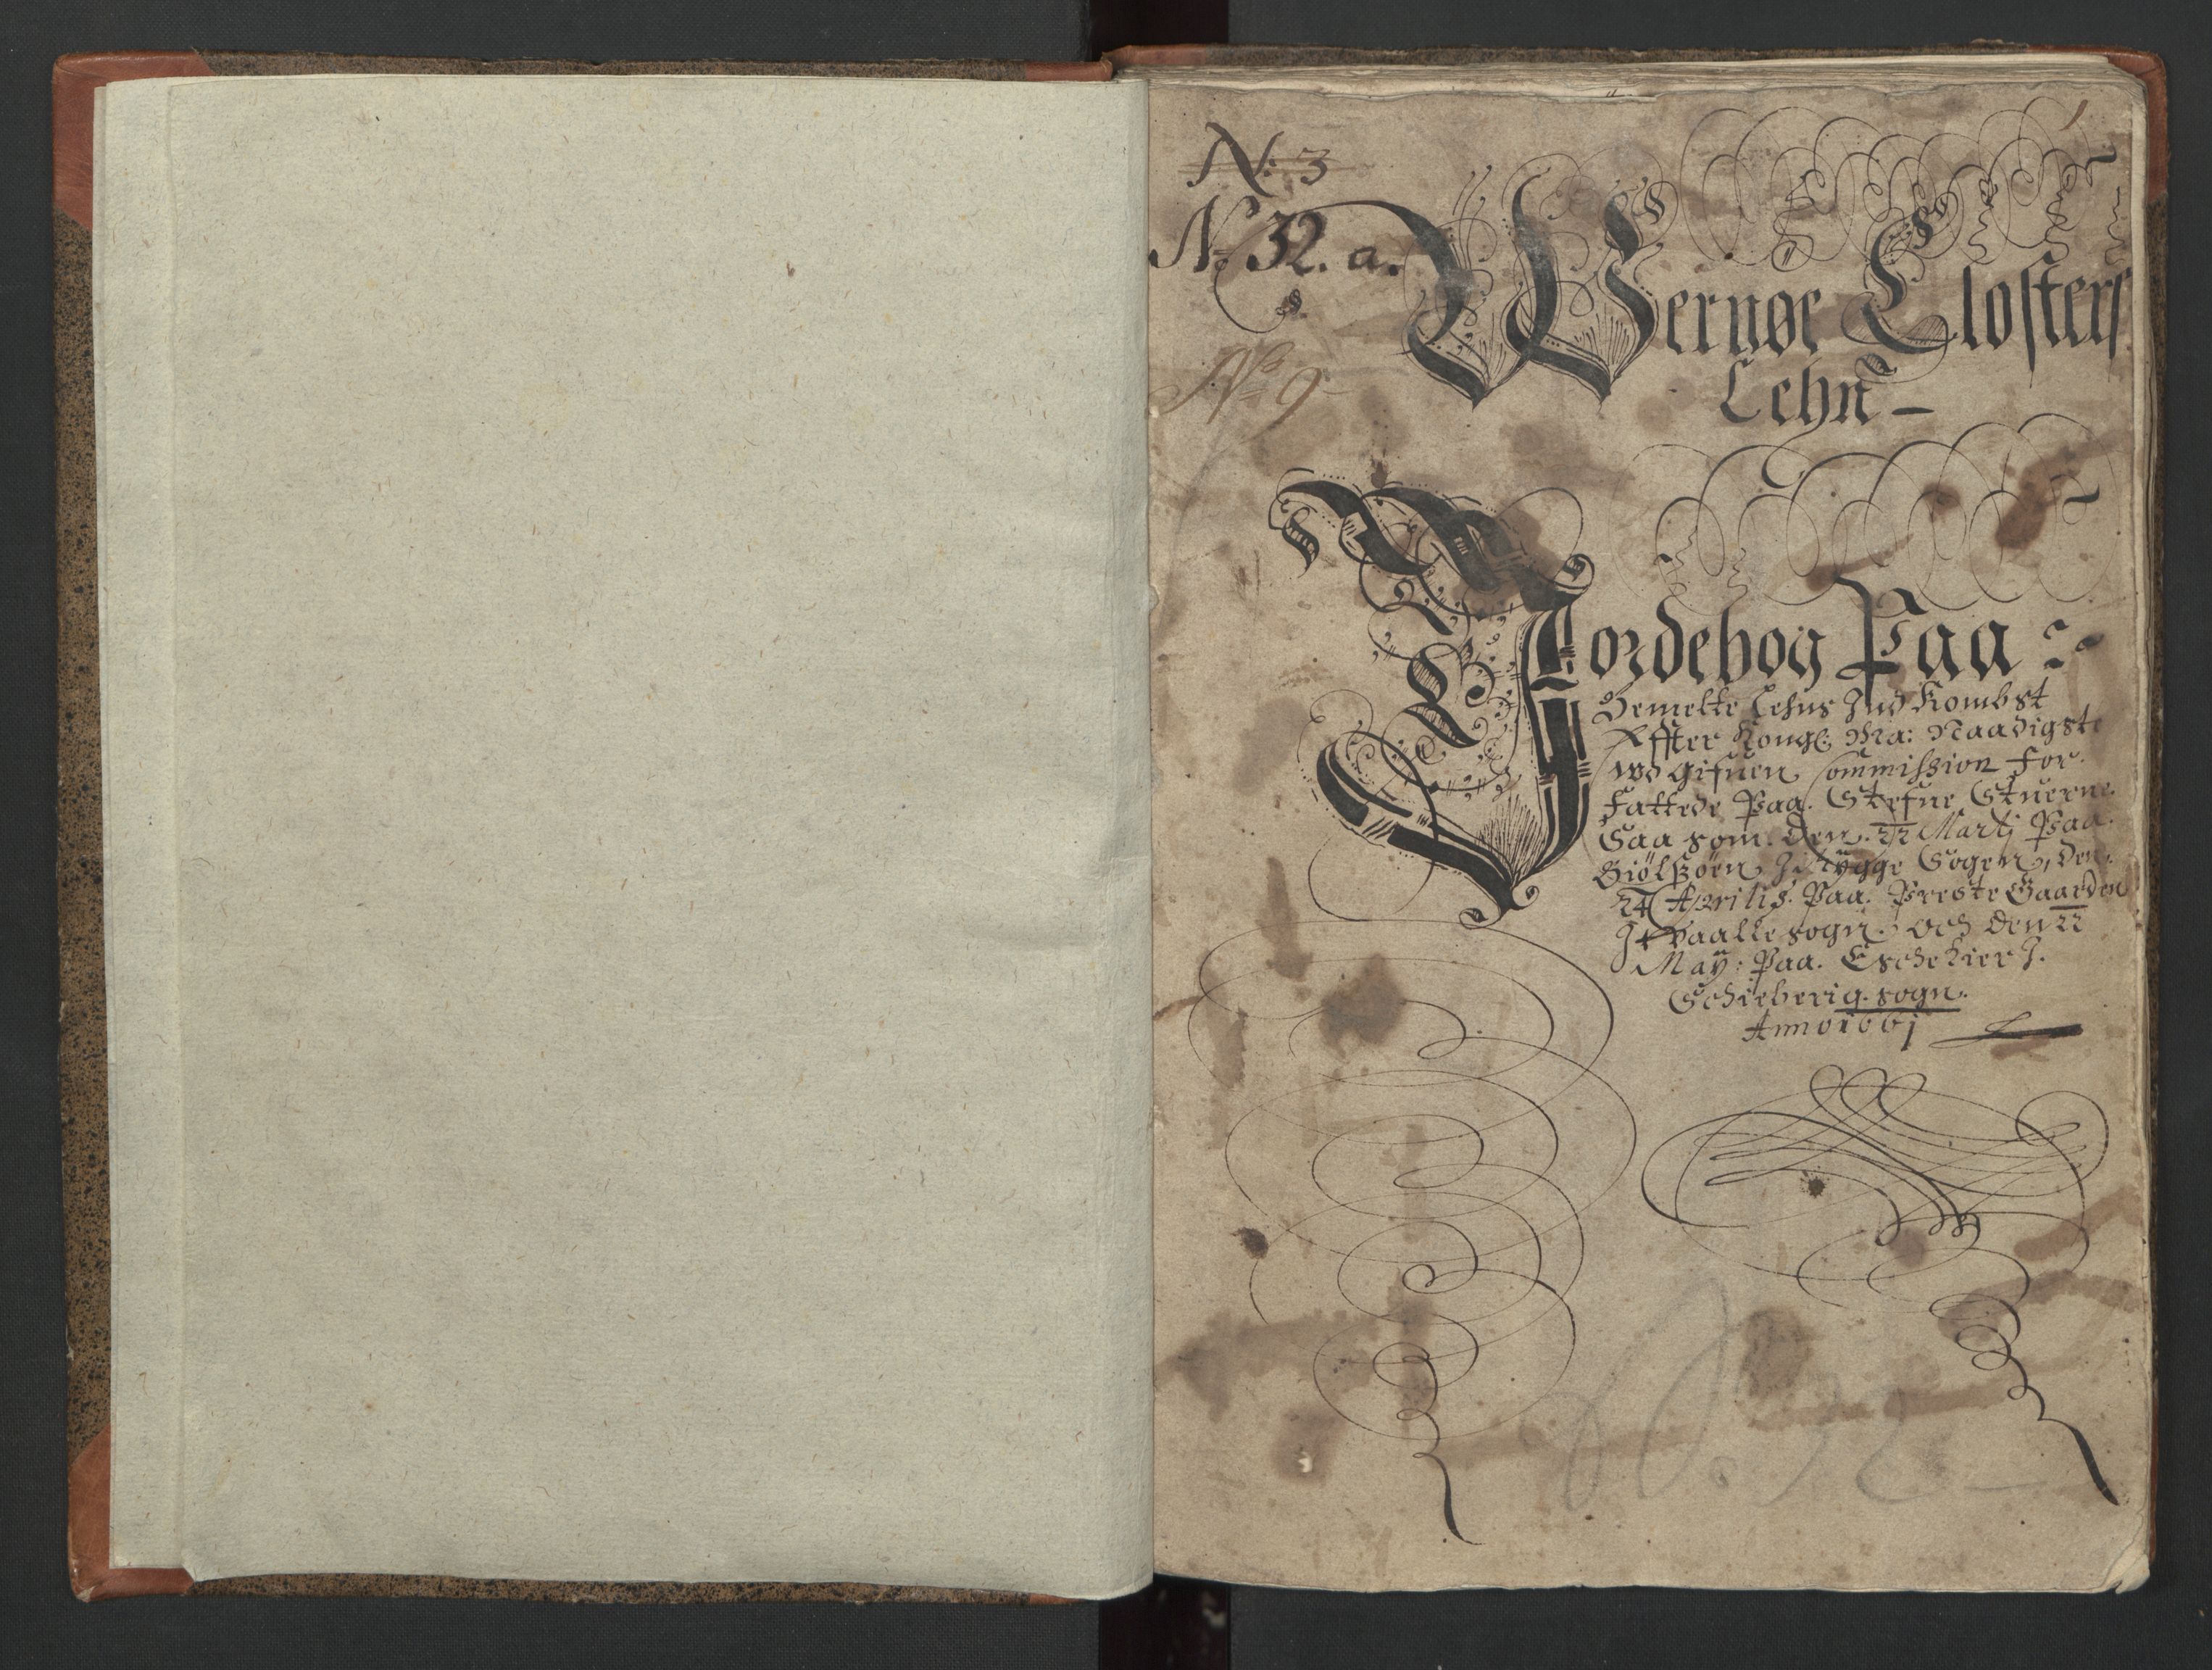 1
N: 3
No 32. a.
No 9
Wernøe Closters
Lehn
Jordebog Paa
Bemelte Lehns Ind Kombst
Effter Kongl: Ma: Naadigste
wd gifuen Commission for
fattede Paa. Stefne Stuerne.
Saa som. den. 22 Martj Paa.
Giölßöen J Rygge Sogen, den.
24 Aprilis. Paa. Preste Gaarden
J Vaalle sogn. och den 22
Maÿ: Paa. Eschekier J.
Schieberig. sogn.
Anno 1661